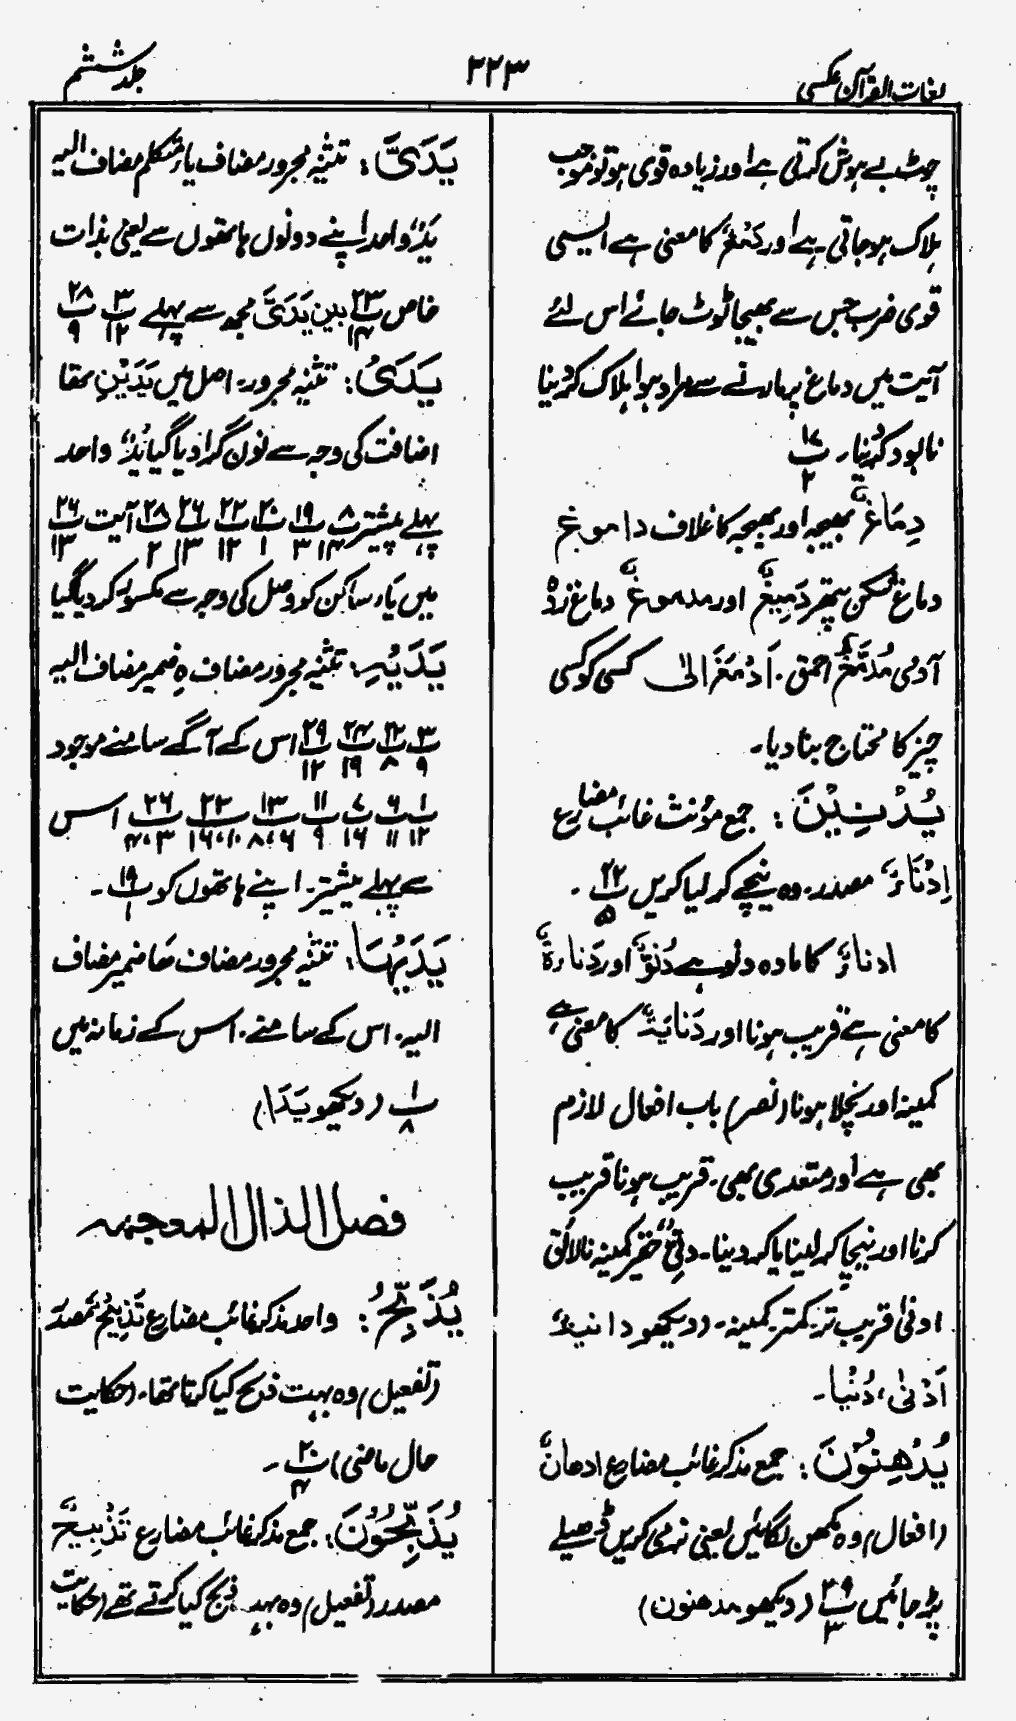 لغات القرآن عکسی
۲۲۳
جلد ششم
چوٹ بے ہوش کرتی ہے اور زیادہ قوی ہو تو موجب
ہلاک ہو جاتی ہے اور دَمْغٌ کا معنی ہے ایسی
قوی ضرب جس سے بھیجا ٹوٹ جائے اس لئے
آیت میں دماغ پر مارنے سے مراد ہوا ہلاک کر دینا
نابود کر دینا۔ ۱۷ پ ۲
دِمَاغٌ بھیجہ اور بھیجہ کا غلاف داموغ
دماغ شکن پتھر دَمِیغٌ اور مدموغٌ دماغ زدہ
آدمی مُدَمَّغٌ احمق۔ اَدْمَغَ الیٰ کسی کو کسی
چیز کا محتاج بنا دیا۔
یُدْنِیْنَ : جمع مؤنث غائب مضارع
اِدْنَاءٌ مصدر۔ وہ نیچے کر لیا کریں ۲۲ پ ۵ ۔
ادناءٌ کا مادہ دلو ہے دُنُوٌّ اور دَنَاءَۃٌ
کا معنی ہے قریب ہونا اور دَنَایَۃٌ کا معنی ہے
کمینہ اور نچلا ہونا (نصر) باب افعال لازم
بھی ہے اور متعدی بھی۔ قریب ہونا قریب
کرنا اور نیچا کر لینا یا کر دینا۔ دنیٌّ حقیر کمینہ نالائق
ادنیٰ قریب تر کمتر کمینہ۔ (دیکھو دانیۃٌ
اَدْنیٰ، دُنْیا۔
یُدْھِنُوْنَ : جمع مذکر غائب مضارع ادھانٌ
(افعال) وہ مکھن لگائیں یعنی نرمی کریں ڈھیلے
پڑ جائیں ۲۹ پ ۳ (دیکھو مدھنون)
یَدَیَّ : تثنیہ مجرور مضاف یاء متکلم مضاف الیہ
یَدٌ واحد اپنے دونوں ہاتھوں سے یعنی بذات
خاص ۲۳ پ ۱۴ بین یَدَیَّ مجھ سے پہلے ۳ پ ۱۲ ۲۸ پ ۹
یَدَیْ : تثنیہ مجرور۔ اصل میں یَدَیْنِ تھا
اضافت کی وجہ سے نون گرا دیا گیا یَدٌ واحد
پہلے پیشتر ۸ پ ۱۴ ۱۹ پ ۳ ۲۰ پ ۱ ۲۲ پ ۱۲ ۲۶ پ ۱۳ ۲۸ پ ۲ آیت ۲۶ پ ۱۳
میں یَاء ساکن کو وصل کی وجہ سے مکسور کر دیا گیا
یَدَیْہِ : تثنیہ مجرور مضاف ہِ ضمیر مضاف الیہ
۳ پ ۹ ۲۲ پ ۸ ۲۴ پ ۱۹ ۲۹ پ ۱۲ اس کے آگے سامنے موجود
۱ پ ۱۲ ۶ پ ۱۱ ۷ پ ۱۶ ۱۱ پ ۹ ۱۳ پ ۸،۶ ۲۲ پ ۱۶،۱۰ ۲۶ پ ۴،۳ اس
سے پہلے پیشتر۔ اپنے ہاتھوں کو ۱۹ پ ۱ ۔
یَدَیْہَا : تثنیہ مجرور مضاف ھا ضمیر مضاف
الیہ۔ اس کے سامنے۔ اس کے زمانہ میں
۱ پ ۸ (دیکھو یَدَا)
فصل الذال المعجمہ
یُذَبِّحُ : واحد مذکر غائب مضارع تَذْبِیْحٌ مصدر
(تفعیل) وہ بہت ذبح کیا کرتا تھا۔ (حکایت
حال ماضی) ۲۰ پ ۴ ۔
یُذَبِّحُوْنَ : جمع مذکر غائب مضارع تَذْبِیحٌ
مصدر (تفعیل) وہ ذبح کیا کرتے تھے (حکایت